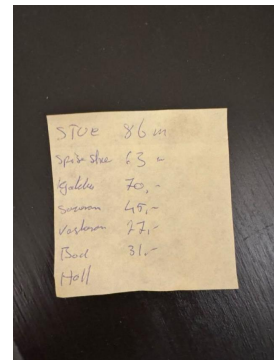 STUE 86 m
Spisestue 63 -
Kjøkken 70,-
Soverom 45,-
Vaskerom 27,-
Bad 31,-
Hall